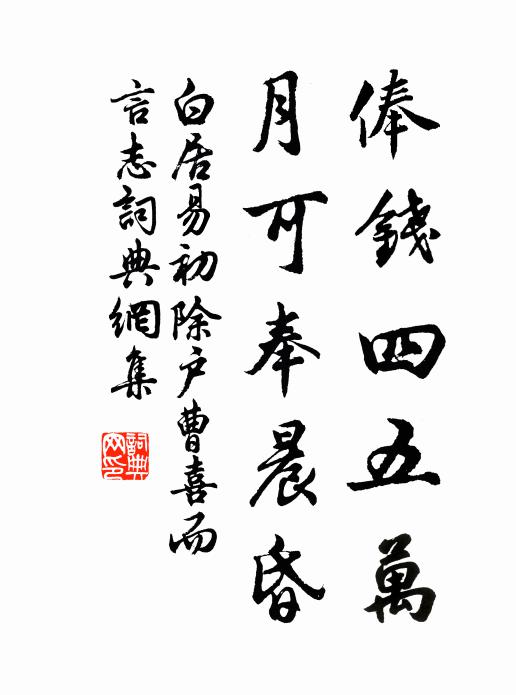 俸錢四五萬
月可奉晨昏
白居易初除户曹喜而
言志詞典網集
詞典
网印